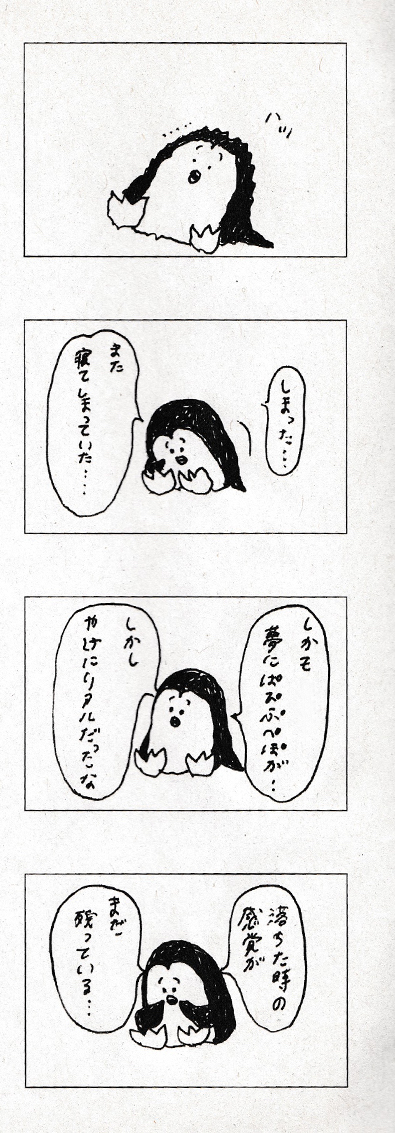 ハッ
しまった…
また
寝てしまっていた…
しかも
夢にぱぴぷぺぽが…
しかし
やけにリアルだったな
落ちた時の
感覚が
まだ
残っている…